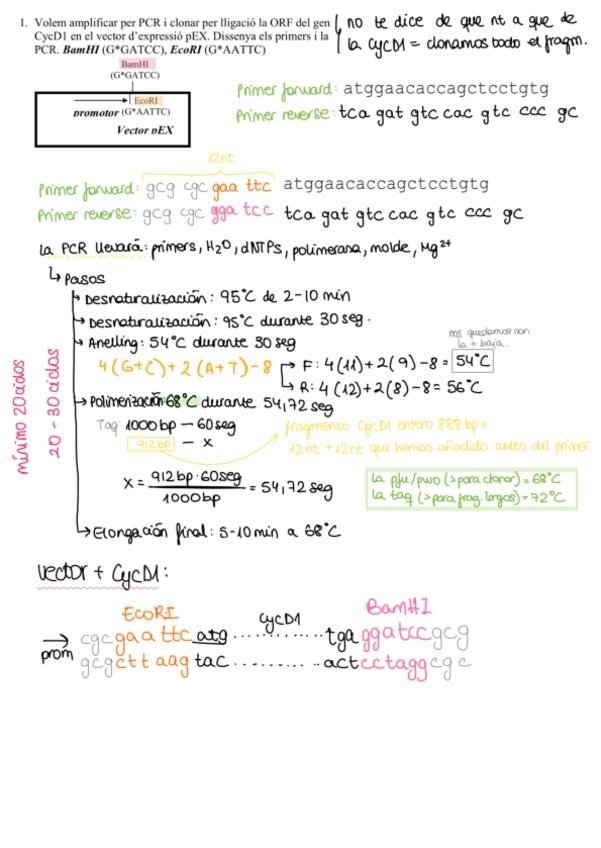 1. Volem amplificar per PCR i clonar per lligació la ORF del gen
CycD1 en el vector d'expressió pEX. Dissenya els primers i la
PCR. BamHI (G*GATCC), EcoRI (G*AATTC)
no te dice de que nt a que de
la CycD1 = clonamos todo el fragm.
BamHI
(G*GATCC)
EcoRI
promotor (G*AATTC)
Vector pEX
Primer forward: atggaacaccagctcctgtg
Primer reverse: tca gat gtc cac gtc ccc gc
12nt
Primer forward: gcg cgc gaa ttc atggaacaccagctcctgtg
Primer reverse: gcg cgc gga tcc tca gat gtc cac gtc ccc gc
la PCR llevará: primers, H2O, dNTPs, polimerasa, molde, Mg2+
Pasos
Desnaturalización: 95°C de 2-10 min
Desnaturalización: 95°C durante 30 seg.
Anelling: 54°C durante 30 seg
nos quedamos con
la + baja.
4(G+C) + 2(A+T) - 8
F: 4(11) + 2(9) - 8 = 54°C
R: 4(12) + 2(8) - 8 = 56°C
mínimo 20 ciclos
20 - 30 ciclos
Polimerización: 68°C durante 54,72 seg
Taq: 1000 bp - 60 seg
912 bp - x
fragmento CycD1 entero 888 bp +
12nt + 12nt que hemos añadido antes del primer
x = 912 bp · 60 seg / 1000 bp = 54,72 seg
la pfu/pwo (> para clonar) = 68°C
la taq (> para frag. largos) = 72°C
Elongación final: 5-10 min a 68°C
Vector + CycD1:
EcoRI CycD1 BamHI
prom cgcgaattcatg ............ tgaggatccgcg
gcgcttaagtac ............ actcctaggcgc